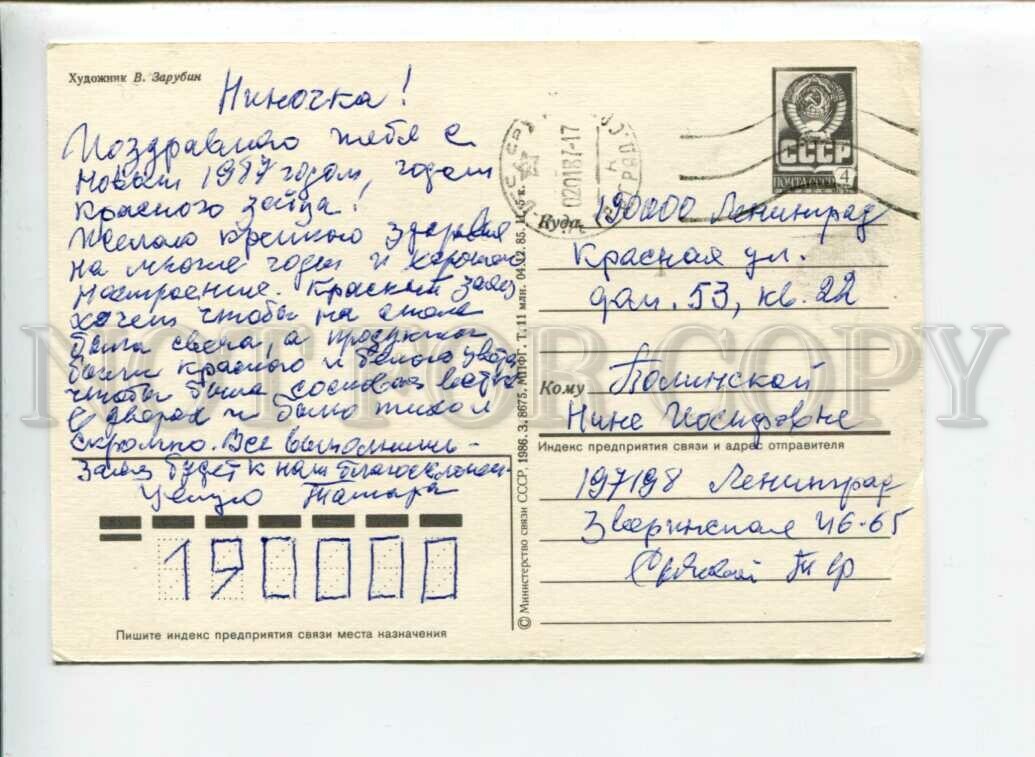 Художник В. Зарубин
Ниночка!
Поздравляю тебя с
Новым 1987 годом, годом
красного зайца!
Желаю крепкого здоровья
на многие годы и хорошего
настроение. Красный заяц
хочет чтобы на столе
была свеча, а продукты
были красного и белого цвета,
чтобы была сосновая ветка
в дворах и было тихо и
скромно. Все выполним -
Заяц будет к нам благосклонен.
Целую Тамара
190000
Пишите индекс предприятия связи места назначения
© Министерство связи СССР, 1986. З. 8675. МПФГ. Т. 11 млн. 04.12.85. Ц. 5 к.
020187-17
СССР
ПОЧТА СССР 4
Куда 190000 Ленинград
Красная ул.
дом. 53, кв. 22
Кому Волинской
Нине Иосифовне
Индекс предприятия связи и адрес отправителя
197198 Ленинград
Зверинская 46-65
NOT FOR COPY